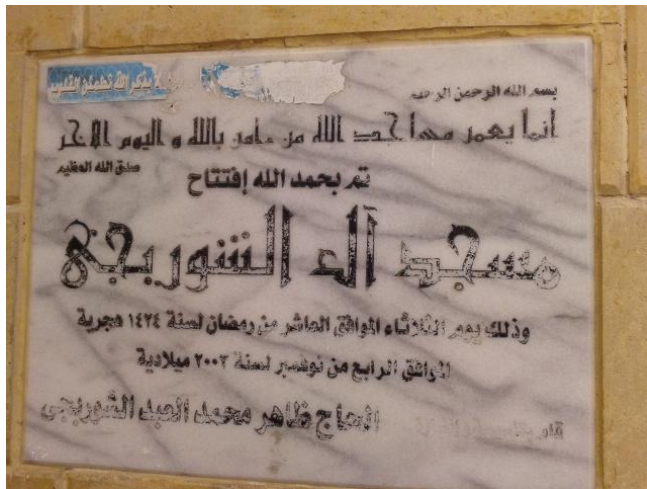 بذكر الله تطمئن القلوب
بسم الله الرحمن الرحيم
انما يعمر مساجد الله من ءامن بالله و اليوم الاخر
صدق الله العظيم
تم بحمد الله إفتتاح
مسجد آل الشوربجى
وذلك يوم الثلاثاء الموافق العاشر من رمضان لسنة ١٤٢٤ هجرية
الموافق الرابع من نوفمبر لسنة ٢٠٠٣ ميلادية
قام
الحاج ظاهر محمد العبد الشوربجى